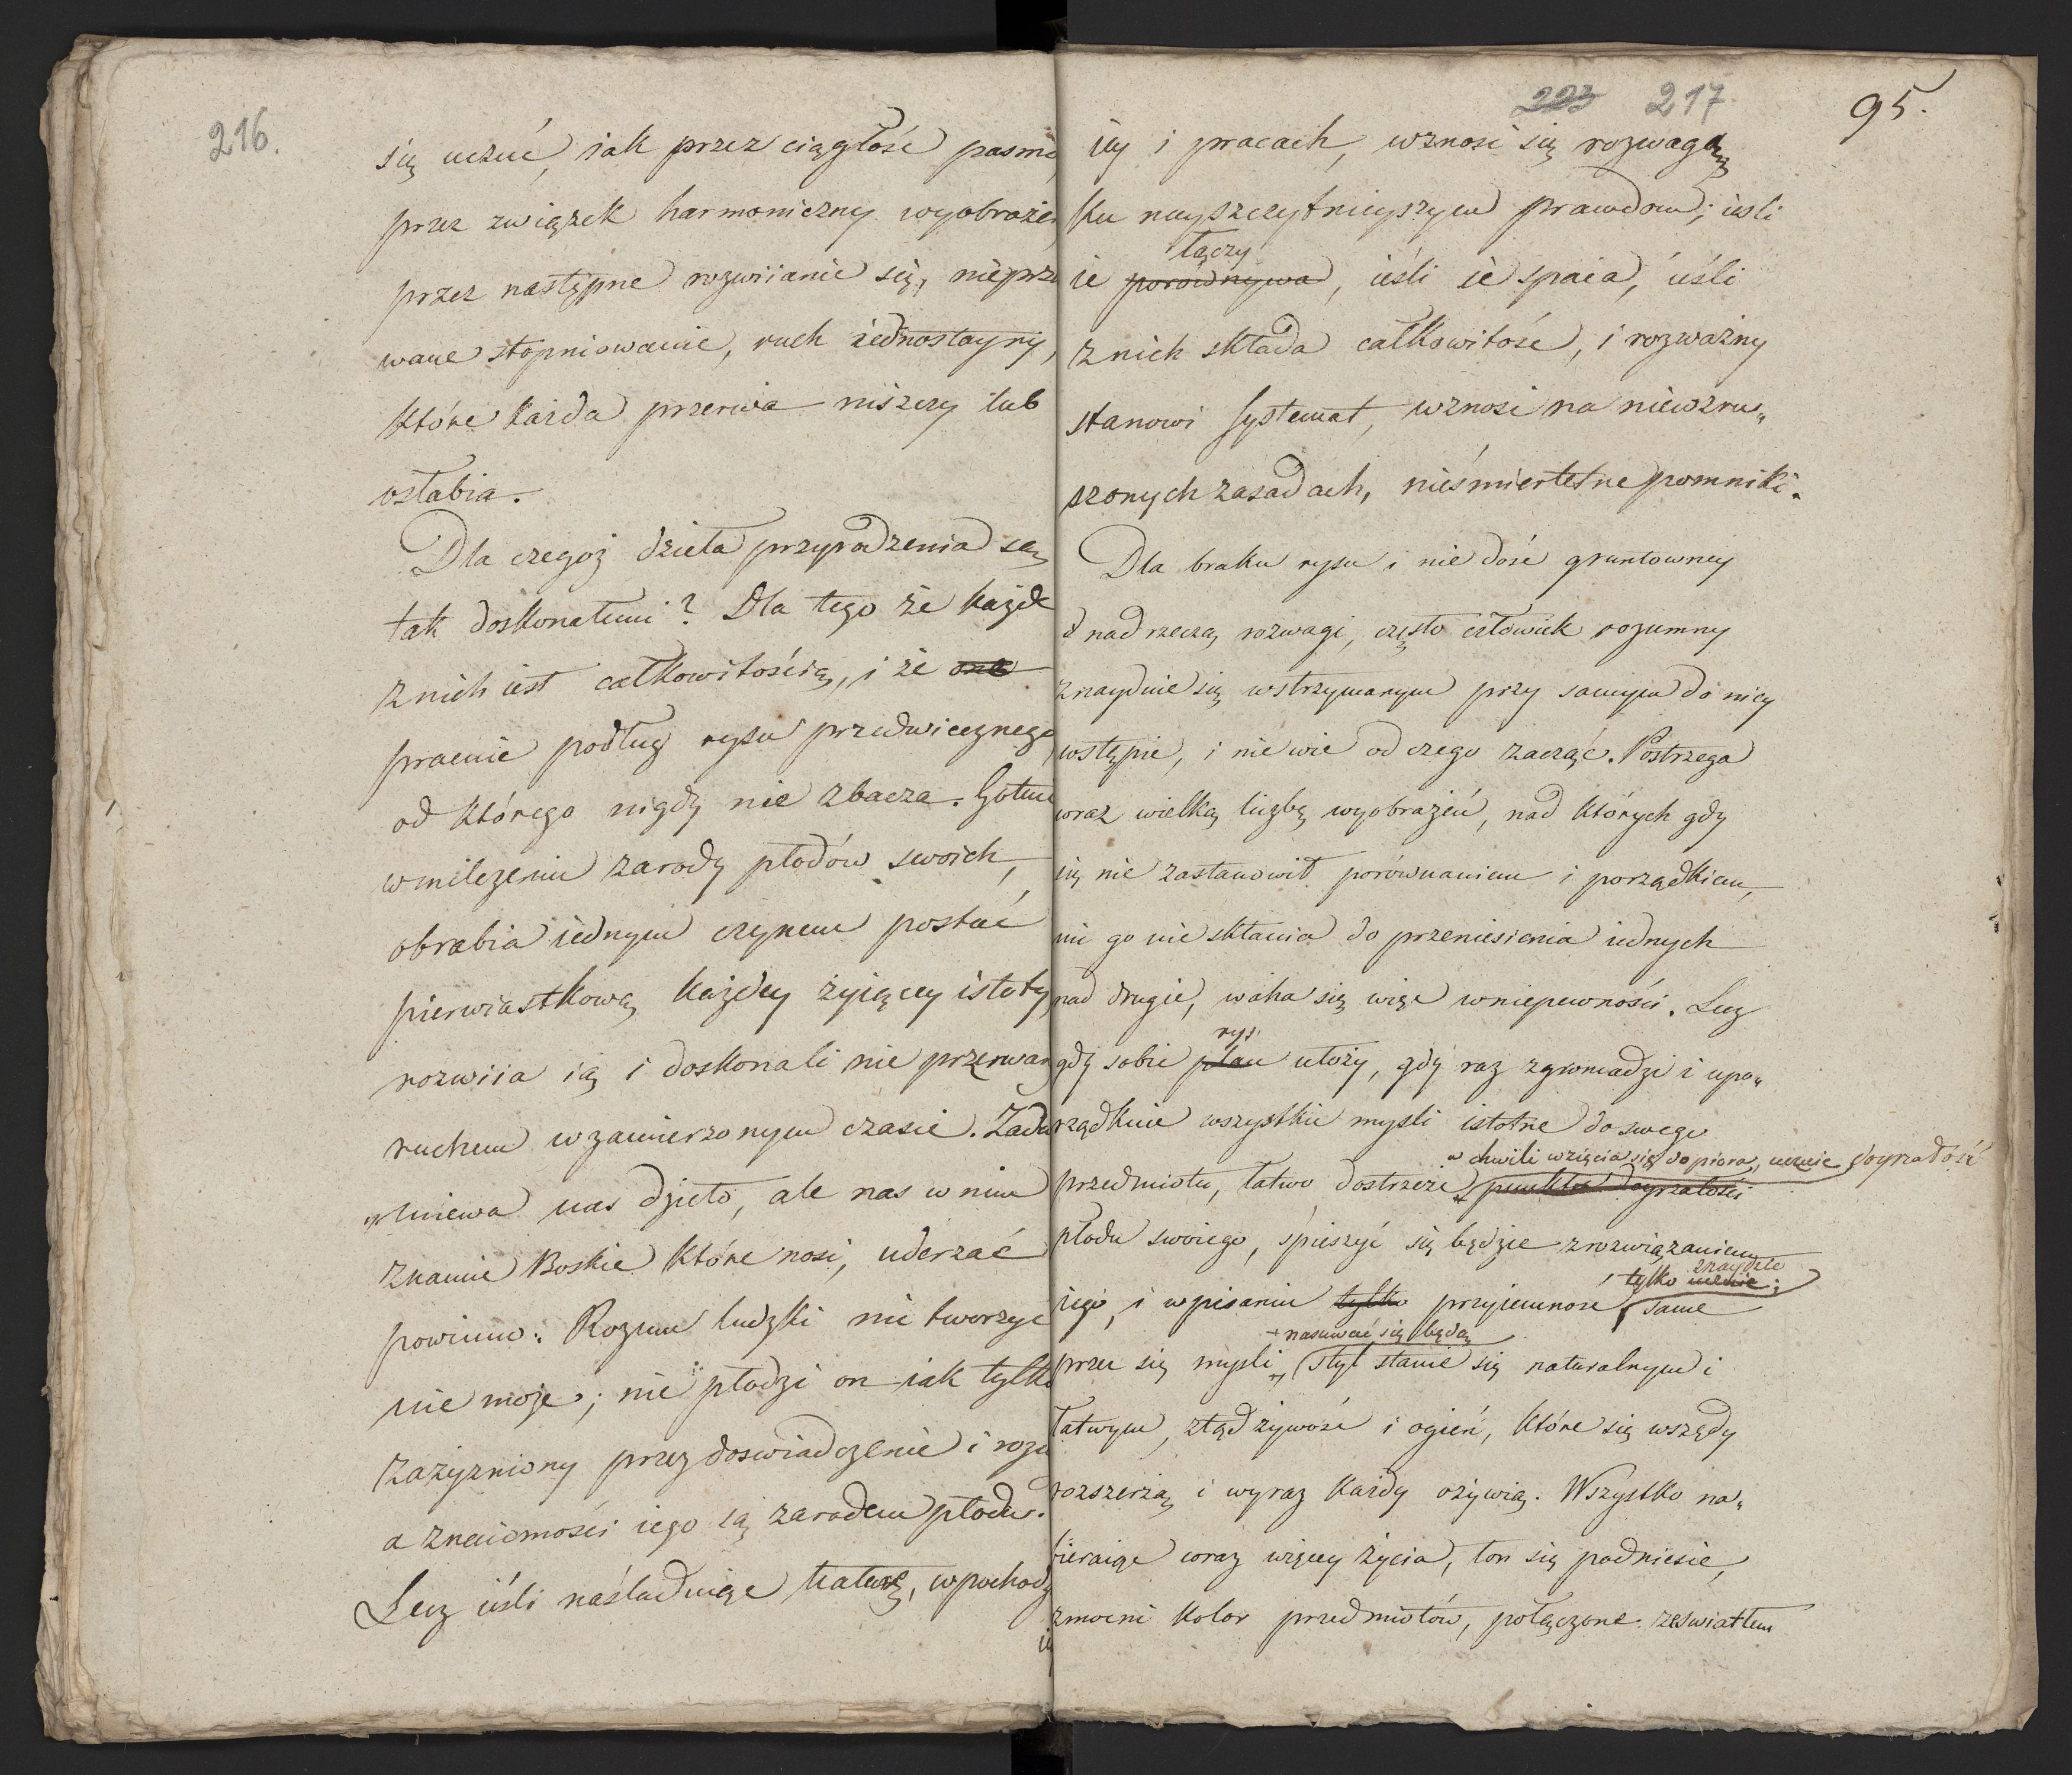 216.
się uczuć, iak przez ciągłość pasma,
przez związek harmoniczny wyobraże
przez następne rozwiianie się, nieprze
wane stopniowanie, ruch iednostayny,
które każda przerwa niszczy lub
osłabia.
Dla czegoż dzieła przyrodzenia są
tak doskonałemi? Dla tego że każde
z nich iest całkowitością, i że ono
pracuie podług rysu przedwiecznego,
od którego nigdy nie zbacza. Gotuie
w milczeniu zarody płodów swoich,
obrabia iednym czynem postać
pierwiastkową każdey żyiącey istoty,
rozwiia ią i doskonali nie przerwan
ruchem w zamierzonym czasie. Zadu
„miewa nas dzieło, ale nas w nim
znamie Boskie które nosi, uderzać
powinno. Rozum ludzki nic tworzyć
nie może; nie płodzi on iak tylko
zażyzniony przez doswiadczenie i rozw
a znaiomości iego są zarodem płodu.
Lecz ieśli naśladuiąc naturę, w pochodz
ie
223 217 95.
iey i pracach, wznosi się rozwagą
ku nayszczytnieyszym prawdom; iesli
łączy
ie porównywa, ieśli ie spaia, ieśli
z nich składa całkowitość, i rozważny
stanowi systemat, wznosi na niewzru„
szonych zasadach, nieśmiertelne pomniki.
Dla braku rysu i nie dość gruntowney
nad rzeczą rozwagi, często człowiek rozumny
znayduie się wstrzymanym przy samym do niey
wstępie, i nie wie od czego zacząć. Postrzega
wraz wielką liczbę wyobrażeń, nad których gdy
się nie zastanowił porównaniem i porządkiem,
nic go nie skłania do przeniesienia iednych
nad drugie, waha się więc w niepewności. Lecz
rys
gdy sobie plan ułoży, gdy raz zgromadzi i upo„
rządkuie wszystkie mysli istotne do swego
w chwili wzięcia się do piora, uczuie doyrzałość
przedmiotu, łatwo dostrzeże punktu doyrzałości
płodu swoiego, śpieszyć się będzie z rozwiązaniem
znaydzie
tylko uczuie;
iego, i w pisaniu tylko przyiemność same
+ nasuwać się będą
przez się mysli, styl stanie się naturalnym i
łatwym, ztąd żywość i ogień, które się wszędy
rozszerzą i wyraz każdy ożywią. Wszystko na„
bieraiąc coraz więcey życia, ton się podniesie,
zmocni kolor przedmiotów, połączone ze swiatłem